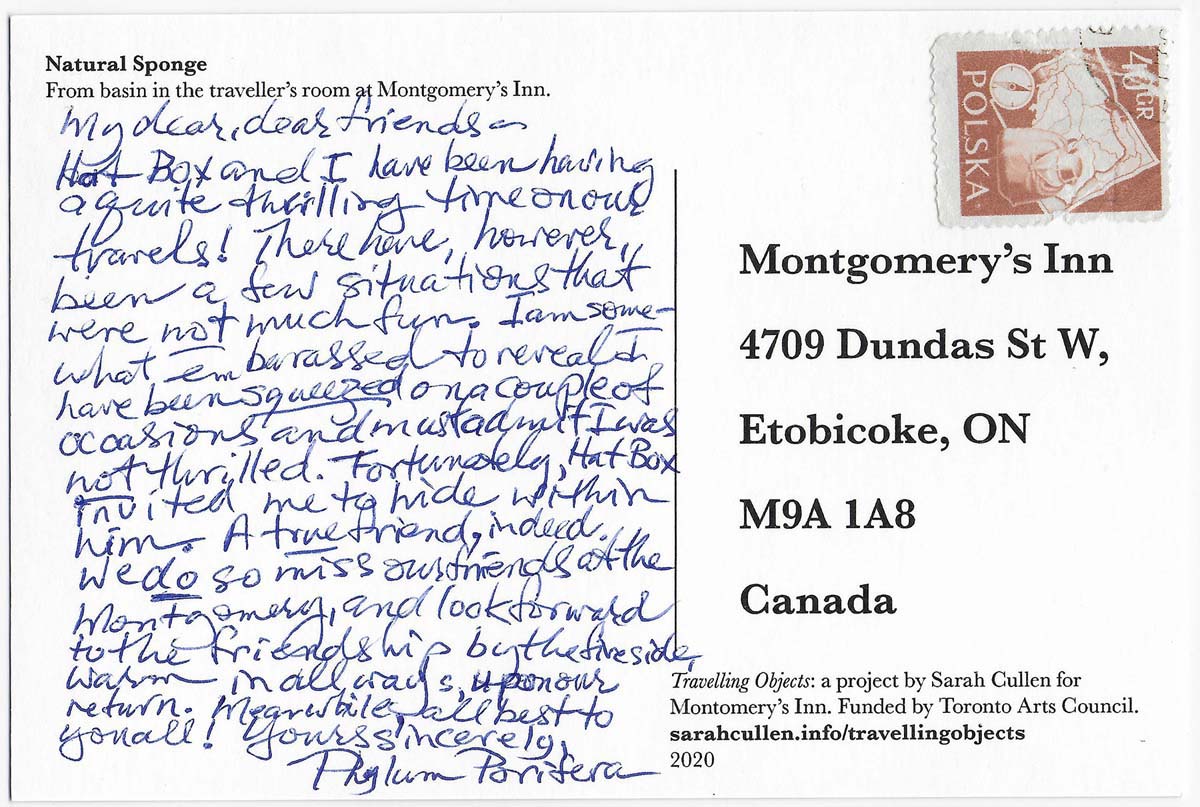 Natural Sponge
From basin in the traveller's room at Montgomery's Inn.
My dear, dear friends –
Hat Box and I have been having
a quite thrilling time on our
travels! There have, however,
been a few situations that
were not much fun. I am some-
what embarassed to reveal I
have been squeezed on a couple of
occasions and must admit I was
not thrilled. Fortunately, Hat Box
invited me to hide within
him. A true friend, indeed.
We do so miss our friends at the
Montgomery, and look forward
to the friendship by the fireside,
warm in all ways, upon our
return. Meanwhile, all best to
you all! Yours sincerely,
Phylum Porifera
40GR
POLSKA
Montgomery's Inn
4709 Dundas St W,
Etobicoke, ON
M9A 1A8
Canada
Travelling Objects: a project by Sarah Cullen for
Montomery's Inn. Funded by Toronto Arts Council.
sarahcullen.info/travellingobjects
2020